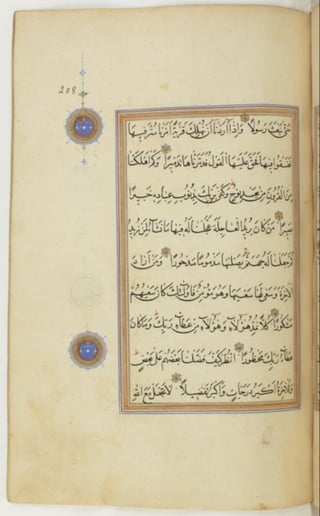 208
حَتَّى نَبْعَثَ رَسُولًا وَإِذَا أَرَدْنَا أَنْ نُهْلِكَ قَرْيَةً أَمَرْنَا مُتْرَفِيهَا
فَفَسَقُوا فِيهَا فَحَقَّ عَلَيْهَا الْقَوْلُ فَدَمَّرْنَاهَا تَدْمِيرًا وَكَمْ أَهْلَكْنَا
مِنَ الْقُرُونِ مِنْ بَعْدِ نُوحٍ وَكَفَى بِرَبِّكَ بِذُنُوبِ عِبَادِهِ خَبِيرًا
بَصِيرًا مَنْ كَانَ يُرِيدُ الْعَاجِلَةَ عَجَّلْنَا لَهُ فِيهَا مَا نَشَاءُ لِمَنْ نُرِيدُ
ثُمَّ جَعَلْنَا لَهُ جَهَنَّمَ يَصْلَيهَا مَذْمُومًا مَدْحُورًا وَمَنْ أَرَادَ
الْآخِرَةَ وَسَعَى لَهَا سَعْيَهَا وَهُوَ مُؤْمِنٌ فَأُولَئِكَ كَانَ سَعْيُهُمْ
مَشْكُورًا كُلًّا نُمِدُّ هَؤُلَاءِ وَهَؤُلَاءِ مِنْ عَطَاءِ رَبِّكَ وَمَا كَانَ
عَطَاءُ رَبِّكَ مَحْظُورًا انْظُرْ كَيْفَ فَضَّلْنَا بَعْضَهُمْ عَلَى بَعْضٍ
وَلَلْآخِرَةُ أَكْبَرُ دَرَجَاتٍ وَأَكْبَرُ تَفْضِيلًا لَا تَجْعَلْ مَعَ اللَّهِ